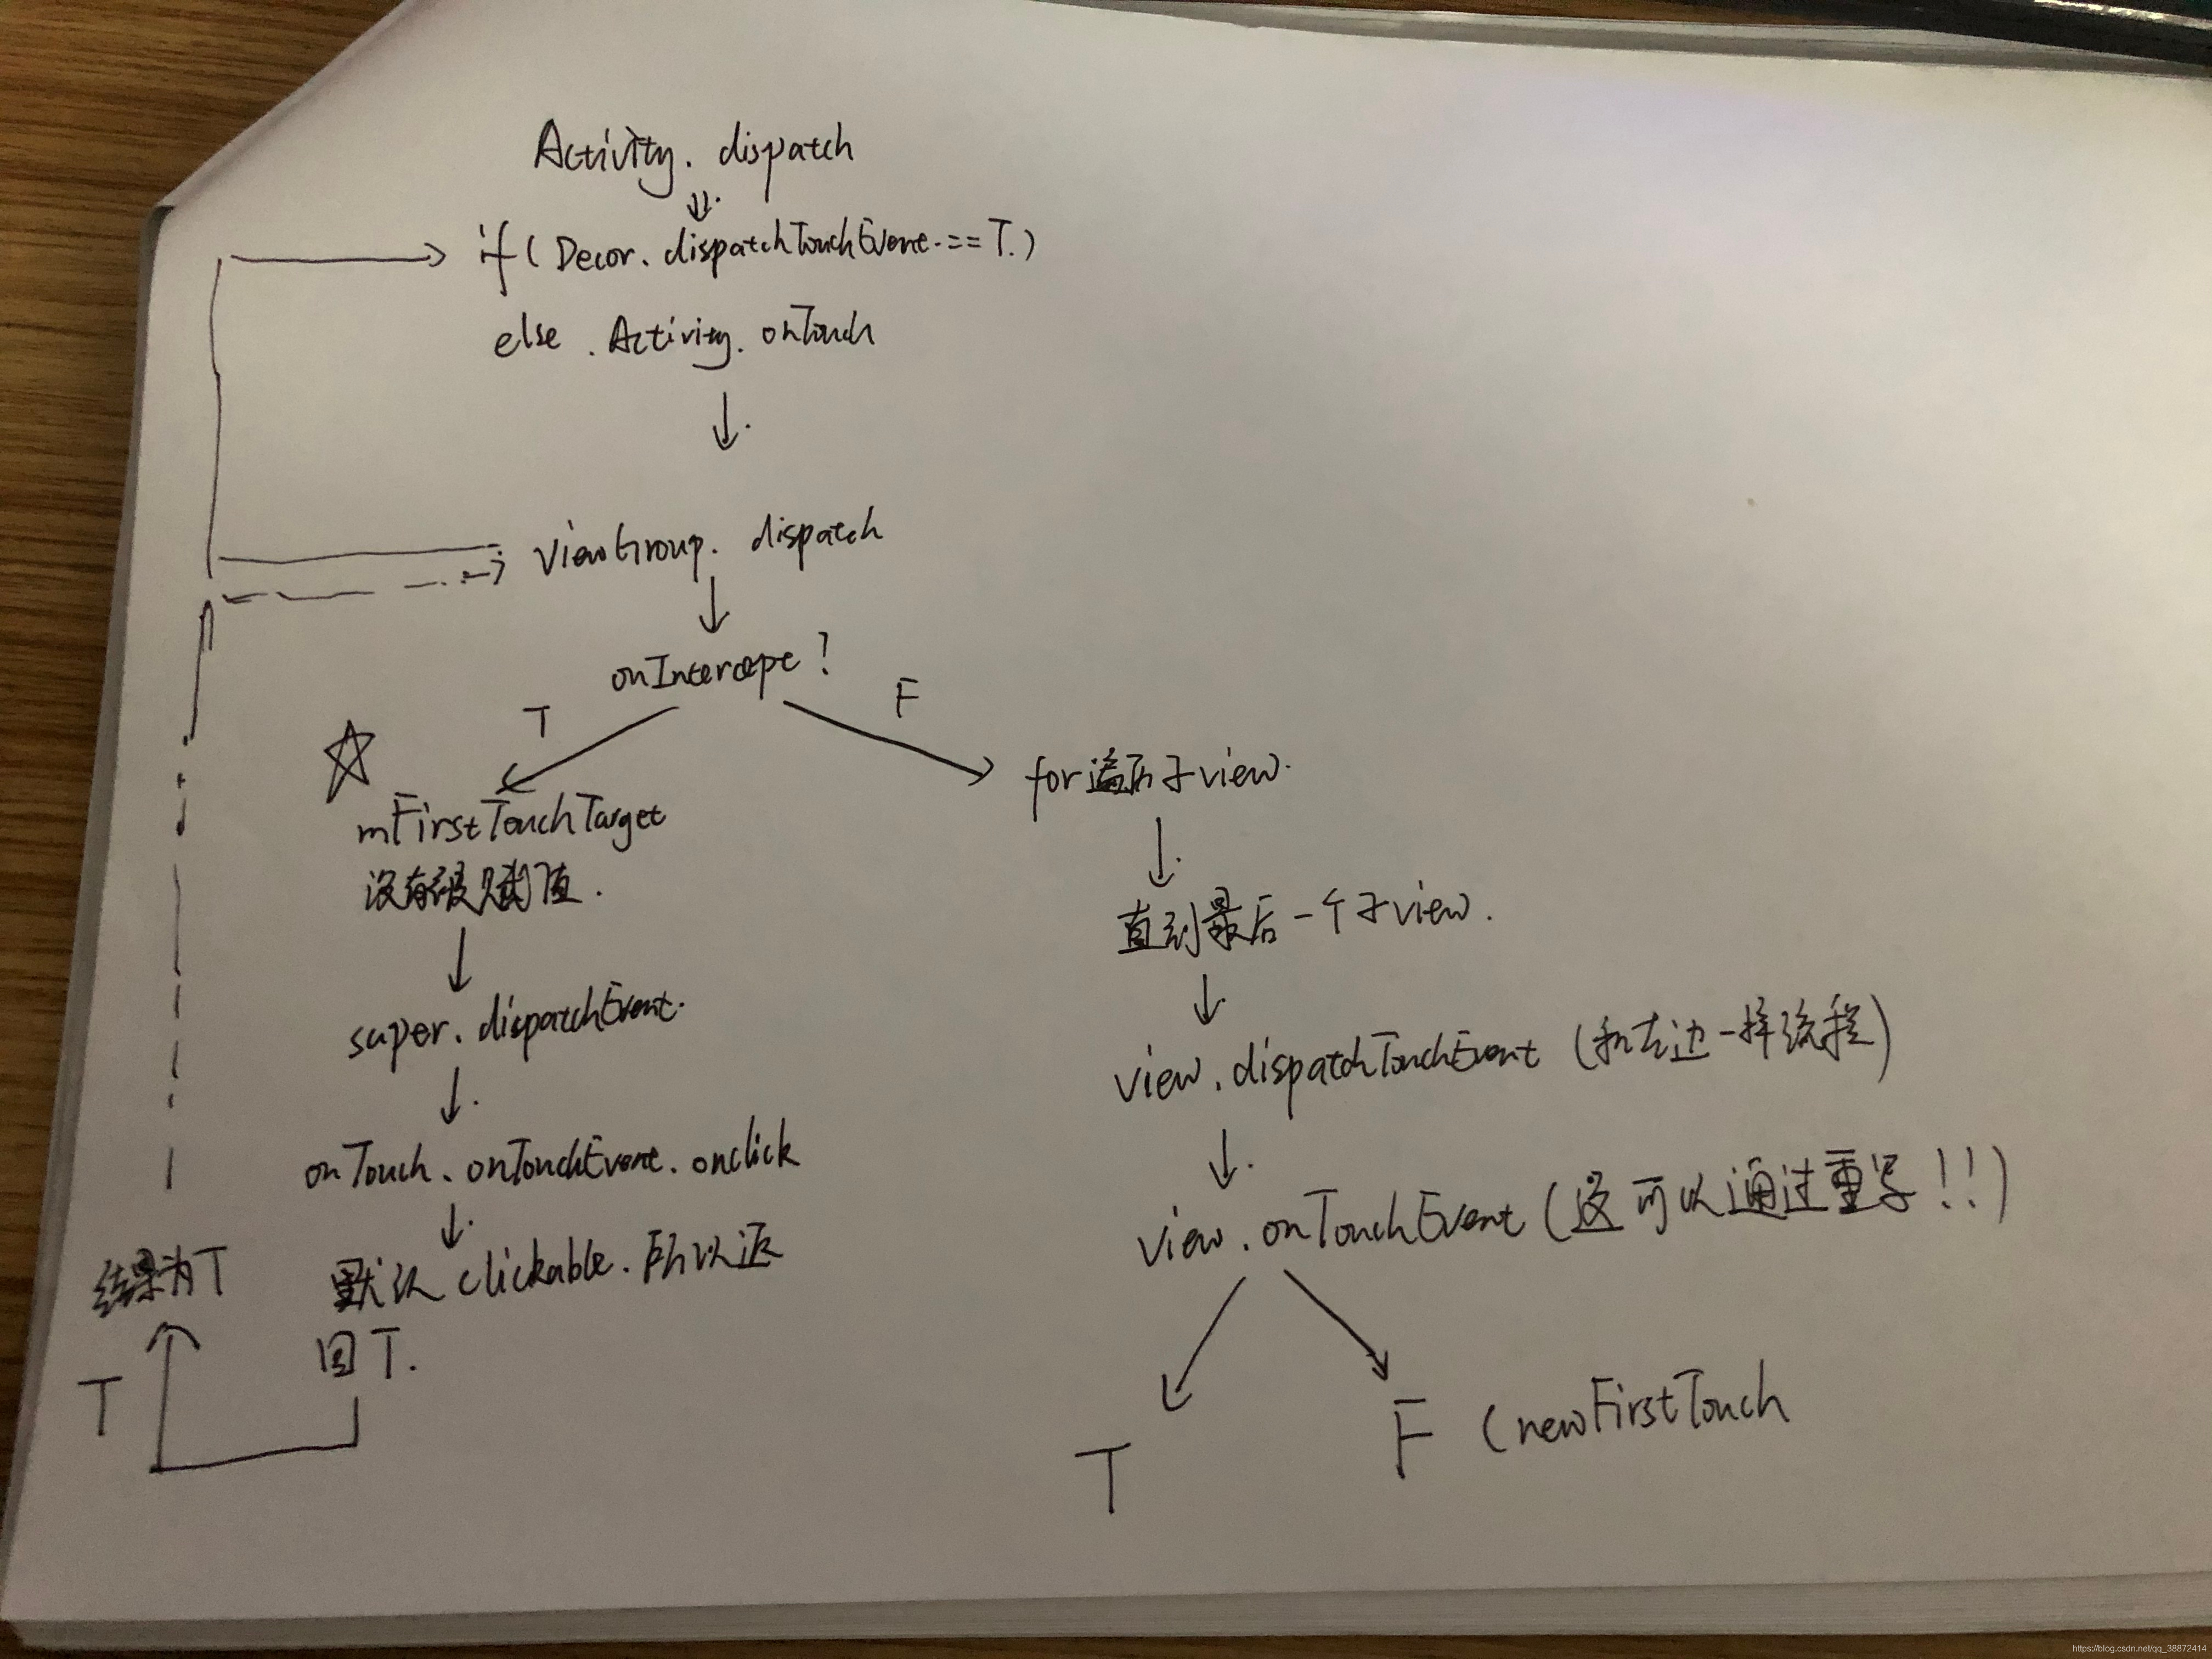 Activity. dispatch
if( Decor. dispatchTouchEvent.==T.)
else . Activity. onTouch
ViewGroup. dispatch
onIntercept?
T
F
mFirstTouchTarget
没有被赋值.
super. dispatchEvent.
onTouch. onTouchEvent. onclick
默认 clickable. 所以返
回T.
结果为T
T
for遍历子view.
直到最后一个子view.
view. dispatchTouchEvent (和左边一样流程)
view. onTouchEvent (这可以通过重写!!)
T
F (newFirstTouch
https://blog.csdn.net/qq_38872414